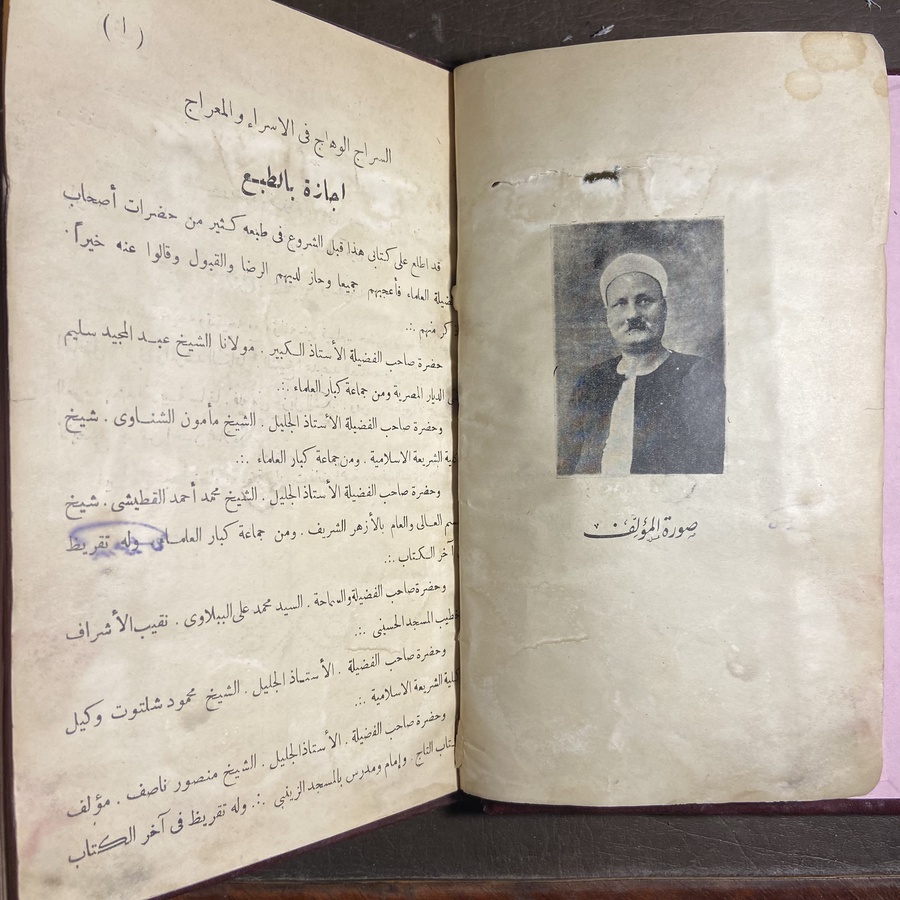 صورة المؤلف
( ١ )
السراج الوهاج فى الاسراء والمعراج
اجازة بالطبع
قد اطلع على كتابى هذا قبل الشروع فى طبعه كثير من حضرات أصحاب
العلماء فأعجبهم جميعا وحاز لديهم الرضا والقبول وقالوا عنه خيراً .
منهم .:.
حضرة صاحب الفضيلة الأستاذ الكبير . مولانا الشيخ عبد المجيد سليم
الديار المصرية ومن جماعة كبار العلماء .:.
وحضرة صاحب الفضيلة الأستاذ الجليل . الشيخ مأمون الشناوى . شيخ
الشريعة الاسلامية . ومن جماعة كبار العلماء .:.
وحضرة صاحب الفضيلة الأستاذ الجليل . الشيخ محمد أحمد القطيشى . شيخ
العالى والعام بالأزهر الشريف . ومن جماعة كبار العلماء وله تقريظ
آخر الكتاب .:.
وحضرة صاحب الفضيلة والسماحة . السيد محمد على الببلاوى . نقيب الأشراف
المسجد الحسينى .:.
وحضرة صاحب الفضيلة . الأستاذ الجليل . الشيخ محمود شلتوت وكيل
الشريعة الاسلامية .:.
وحضرة صاحب الفضيلة . الأستاذ الجليل . الشيخ منصور ناصف . مؤلف
التاج . وإمام ومدرس بالمسجد الزينبى .:. وله تقريظ فى آخر الكتاب